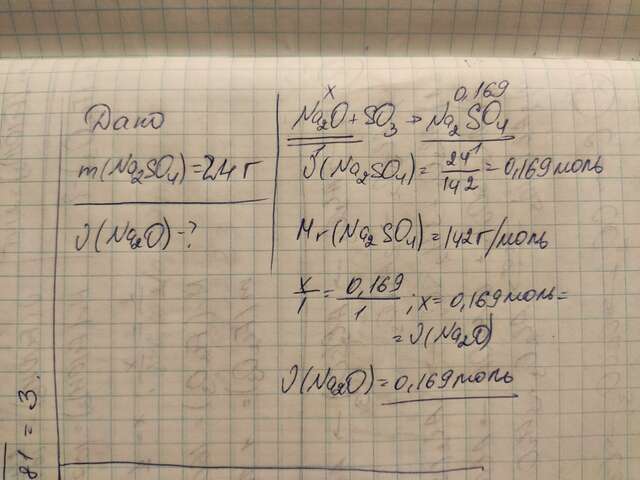 Дано
m(Na₂SO₄)=24г
ν(Na₂O)-?
x 0,169
Na₂O+SO₃→Na₂SO₄
1 1
ν(Na₂SO₄)=24/142=0,169моль
Mr(Na₂SO₄)=142г/моль
x/1=0,169/1; x=0,169моль=
=ν(Na₂O)
ν(Na₂O)=0,169моль
81=3.